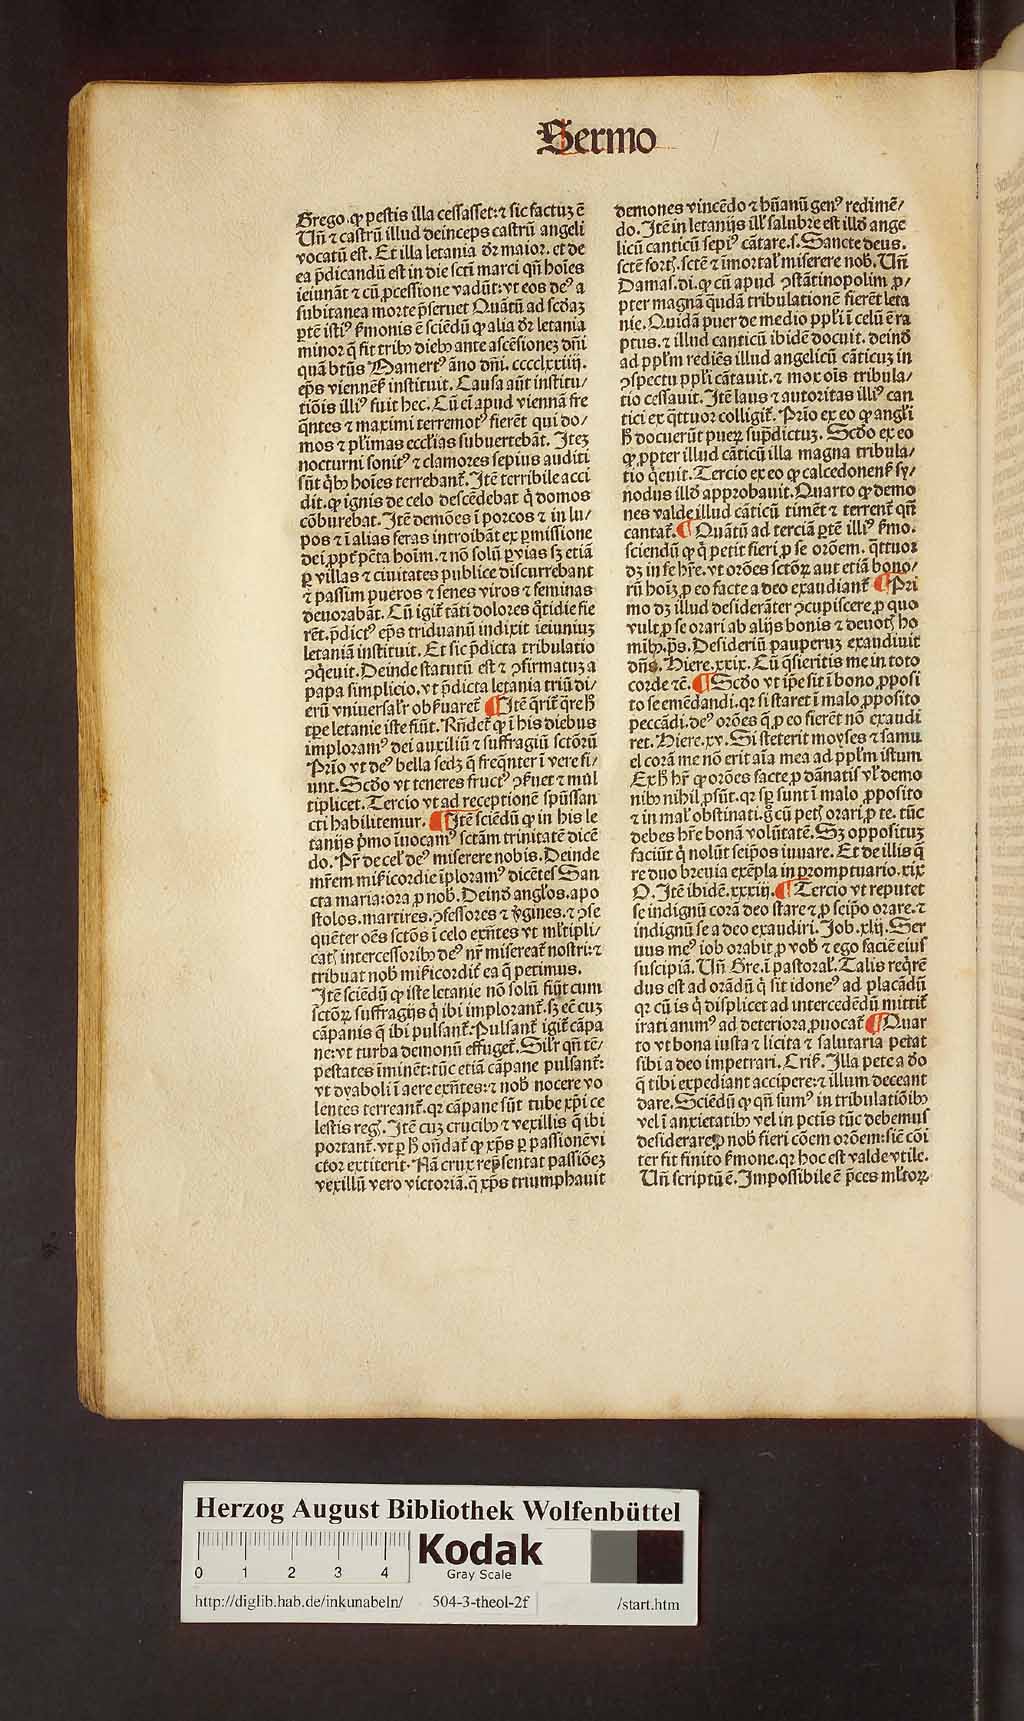 Sermo
Grego. ꝙ pestis illa cessasset:⁊ sic factuꝫ ē
Uñ ⁊ castrū illud deinceps castrū angeli
vocatū est. Et illa letania d̄r maior. et de
ea p̄dicandū est in die scti marci qñ hoīes
ieiunāt ⁊ cū ꝓcessione vadūt: vt eos deꝰ a
subitanea morte p̄seruet Quātū ad scd̄aꝫ
ꝑtē istiꝰ ẜmonis ē sciēdū ꝙ alia d̄r letania
minor q̄ fit tribꝰ diebꝰ ante ascēsioneꝫ dñi
quā bt̄ūs Mamertꝰ āno dñi. cccclxxiiij.
ep̄s viennēẜ instituit. Causa aūt institu/
tiōis illiꝰ fuit hec. Cū eī apud viennā fre
q̄ntes ⁊ maximi terremotꝰ fierēt qui do/
mos ⁊ pl̄imas eccl̄ias subuertebāt. Iteꝫ
nocturni sonitꝰ ⁊ clamores sepius auditi
sūt q̄bꝰ hoīes terrebant̄. Itē terribile acci
dit. ꝙ ignis de celo descēdebat q̄ domos
cōburebat. Itē demōes ī porcos ⁊ in lu/
pos ⁊ ī alias feras introibāt ex ꝑmissione
dei ꝓpt̄ pctā hoīm. ⁊ nō solū ꝑ vias sꝫ etiā
ꝑ villas ⁊ ciuitates publice discurrebant
⁊ passim pueros ⁊ senes viros ⁊ feminas
deuorabāt. Cū igit̄ tāti dolores q̄tidie fie
rēt. p̄dictꝰ ep̄s triduanū indixit ieiuniuꝫ
letaniā instituit. Et sic p̄dicta tribulatio
ꝯq̄euit. Deinde statutū est ⁊ ꝯfirmatuꝫ a
papa simplicio. vt p̄dicta letania triū di/
erū vniuersalr̄ obẜuaret̄ ¶ Itē q̄rit̄ q̄re h̄
tp̄e letanie iste fiūt. Rñdet̄ ꝙ ī his diebus
imploramꝰ dei auxiliū ⁊ suffragiū sctōrū
Prīo vt deꝰ bella sedꝫ q̄ freq̄nter ī vere fi/
unt. Scd̄o vt teneres fructꝰ ꝯẜuet ⁊ mul
tiplicet. Tercio vt ad receptionē spūssan
cti habilitemur. ¶ Itē sciēdū ꝙ in his le
tanijs p̄mo īuocamꝰ sctām trinitatē dicē
do. Pr̄ de cel̄ deꝰ miserere nobis. Deinde
mr̄em miẜicordie īploramꝰ dicētes San
cta maria: ora ꝓ nob̄. Deind̄ anglos. apo
stolos. martires. ꝯfessores ⁊ v̄gines. ⁊ ꝯse
quēter oēs sctōs ī celo exñtes vt ml̄tipli/
catꝭ intercessoribꝰ deꝰ nr̄ misereat̄ nostri:⁊
tribuat nob̄ miẜicordit̄ ea q̄ petimus.
Itē sciēdū ꝙ iste letanie nō solū fiūt cum
sctōꝝ suffragijs q̄ ibi implorant̄. sꝫ eč cuꝫ
cāpanis q̄ ibi pulsant̄. Pulsant̄ igit̄ cāpa
ne: vt turba demonū effuget̄. Silr̄ qñ tē/
pestates īminēt: tūc etiā cāpane pulsant̄:
vt dyaboli ī aere exñtes: ⁊ nob̄ nocere vo
lentes terreant̄. qꝛ cāpane sūt tube xp̄i ce
lestis regꝭ. Itē cuꝫ crucibꝰ ⁊ vexillis q̄ ibi
portant̄. vt ꝑ h̄ oñdat̄ ꝙ xp̄s ꝑ passionē vi
ctor extiterit. Nā crux rep̄sentat passiōeꝫ
vexillū vero victoriā. q̄ xp̄s triumphauit
demones vincēdo ⁊ hūanū genꝰ redimē/
do. Itē in letanijs ill̄ salubre est illd̄ ange
licū canticū sepiꝰ cātare. s. Sancte deus.
sctē fortꝭ. sctē ⁊ īmortal̄ miserere nob̄. Uñ
Damas. di. ꝙ cū apud ꝯstātinopolim ꝓ/
pter magnā q̄dā tribulationē fierēt leta
nie. Quidā puer de medio ppl̄i ī celū ē ra
ptus. ⁊ illud canticū ibidē docuit. deind̄
ad ppl̄m rediēs illud angelicū cāticuꝫ in
ꝯspectu ppl̄i cātauit. ⁊ mox oīs tribula/
tio cessauit. Itē laus ⁊ autoritas illiꝰ can
tici ex q̄ttuor colligit̄. Prīo ex eo ꝙ angl̄i
h̄ docuerūt pueꝝ sup̄dictuꝫ. Scd̄o ex eo
ꝙ ꝓpter illud cāticū illa magna tribula/
tio q̄euit. Tercio ex eo ꝙ calcedonenẜ sy/
nodus illd̄ approbauit. Quarto ꝙ demo
nes valde illud cāticū timēt ⁊ terrent̄ qñ
cantat̄. ¶ Quātū ad terciā ꝑtē illiꝰ ẜmo.
sciendū ꝙ q̄ petit fieri ꝓ se orōem. q̄ttuor
dꝫ in se hr̄e. vt orōes sctōꝝ aut etiā bono/
rū hoīꝫ ꝓ eo facte a deo exaudiant̄ ¶ Pri
mo dꝫ illud desiderāter ꝯcupiscere ꝓ quo
vult ꝓ se orari ab alijs bonis ⁊ deuotꝭ ho
mībꝰ. ps̄. Desideriū pauperuꝫ exaudiuit
dñs. Hiere. xxix. Cū q̄sieritis me in toto
corde ⁊c̄. ¶ Scd̄o vt ip̄e sit ī bono ꝓposi
to se emēdandi. qꝛ si staret ī malo ꝓposito
peccādi. deꝰ orōes q̄ ꝓ eo fierēt nō exaudi
ret. Hiere. xv. Si steterit moyses ⁊ samu
el corā me nō erit aīa mea ad ppl̄m istum
Ex h̄ hr̄ ꝙ orōes facte ꝓ dānatis vl̄ demo
nibꝰ nihil ꝓsūt. qꝛ sꝑ sunt ī malo ꝓposito
⁊ in mal̄ obstinati. g̊ cū petꝭ orari ꝓ te. tūc
debes hr̄e bonā volūtatē. Sꝫ oppositum
faciūt q̄ nolūt seip̄os iuuare. Et de illis q̄
re duo breuia exēpla in promptuario. xix
O. Itē ibidē. xxxiij. ¶ Tercio vt reputet
se indignū corā deo stare ⁊ ꝓ seip̄o orare. ⁊
indignū se a deo exaudiri. Job. xlij. Ser
uus meꝰ iob orabit ꝓ vob̄ ⁊ ego faciē eius
suscipiā. Uñ Gre. ī pastoral̄. Talis req̄rē
dus est ad orādū q̄ sit idoneꝰ ad placādū
qꝛ cū is q̄ displicet ad intercedēdū mittit̄
irati animꝰ ad deteriora ꝓuocat̄ ¶ Quar
to vt bona iusta ⁊ licita ⁊ salutaria petat
sibi a deo impetrari. Criẜ. Illa pete a d̄o
q̄ tibi expediant accipere: ⁊ illum deceant
dare. Sciēdū ꝙ qñ sumꝰ in tribulatiōibꝰ
vel ī anxietatibꝰ vel in pctīs tūc debemus
desiderare ꝓ nob̄ fieri cōem orōem: sic̄ cōi
ter fit finito ẜmone. qꝛ hoc est valde vtile.
Uñ scriptū ē. Impossibile ē p̄ces ml̄toꝝ
Herzog August Bibliothek Wolfenbüttel
0 1 2 3 4
Kodak
Gray Scale
http://diglib.hab.de/inkunabeln/ 504-3-theol-2f /start.htm